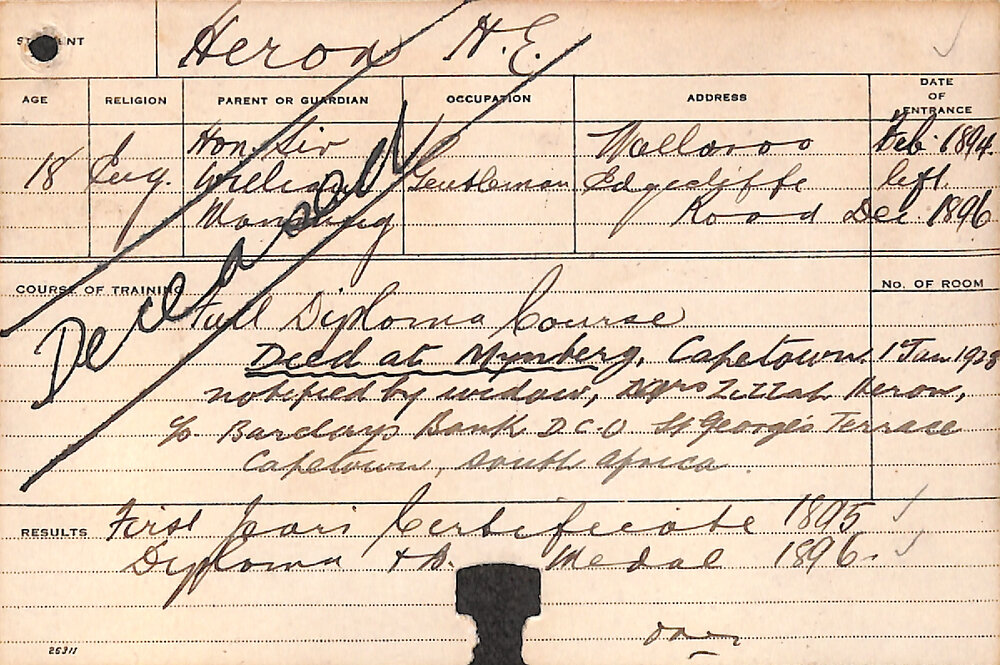 STUDENT Heron H.E.
AGE RELIGION PARENT OR GUARDIAN OCCUPATION ADDRESS DATE OF ENTRANCE
Hon. Sir Wallaroo Feb. 1894.
18 Eng. William Gentleman Edgecliffe left
Manning Road Dec. 1896
Deceased
COURSE OF TRAINING Full Diploma Course No. OF ROOM
Died at Wynberg, Capetown 1 Jan 1928
notified by widow, Mrs Heron,
c/o Barclays Bank D.C.O St George's Terrace
Capetown, South Africa.
RESULTS First Years Certificate 1895
Diploma + B. Medal 1896.
over
25311